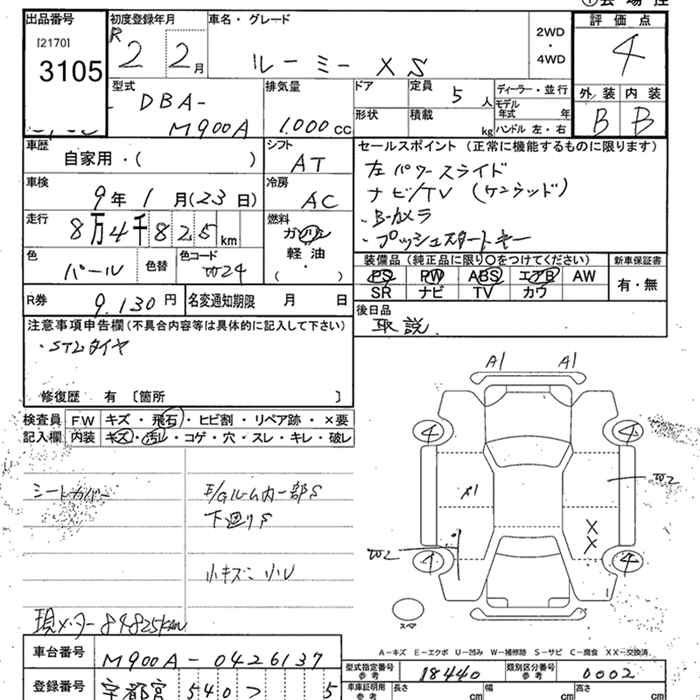 出品番号
[2170]
3105
初度登録年月
R 2 2月
車名・グレード
ルーミー XS
2WD
・
4WD
評価点
4
外装 内装
B B
型式
DBA-
M900A
排気量
1.000cc
ドア
形状
定員 5人
積載 kg
ディーラー・並行
モデル年式 年
ハンドル 左・右
車歴
自家用・( )
シフト
AT
車検
9年1月(23日)
冷房
AC
走行
8万4千825km
燃料
ガソリン
軽油
・
( )
色
パール
色替
色コード
W24
セールスポイント (正常に機能するものに限ります)
左パワースライド
ナビ/TV (ケンウッド)
・Bカメラ
・プッシュスタートキー
装備品 (純正品に限り○をつけてください)
PS PW ABS エアB AW
SR ナビ TV カワ
新車保証書
有・無
R券 9.130円
名変通知期限 月 日
後日品
取説
注意事項申告欄(不具合内容等は具体的に記入して下さい)
・STLタイヤ
修復歴 有 〔箇所 〕
検査員
記入欄
FW キズ・飛石・ヒビ割・リペア跡・×要
内装 キズ・汚レ・コゲ・穴・スレ・キレ・破レ
シートカバー
E/Gルーム内一部S
下廻りS
小キズ 小U
現メーター84825km
A1 A1
4 4
A1 W2
X
X
W2
4 4
スペア
A-キズ E-エクボ U-凹み W-補修跡 S-サビ C-腐食 XX-交換済
車台番号
M900A-0426137
登録番号
宇都宮 540 5
型式指定番号
参考
18440
類別区分番号
参考
0002
車庫証明用
参考
長さ cm
幅 cm
高さ cm